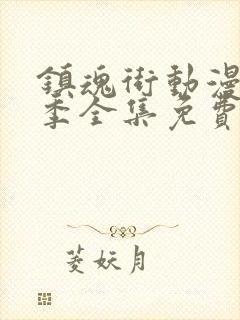 鎮魂街動漫
季全集免費
菱妖月